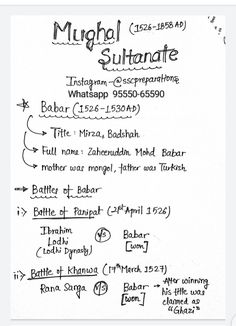 Mughal (1526-1858 AD)
Sultanate
Instagram-@sscpreparations
Whatsapp 95550-65590
Babar (1526-1530AD)
Title: Mirza, Badshah
Full name: Zaheeruddin Mohd Babar
mother was mongol, father was Turkish
Battles of Babar
i) Battle of Panipat (21st April 1526)
Ibrahim Lodhi (Lodhi Dynasty) V/s Babar [won]
ii) Battle of Khanwa (17th March 1527)
Rana Sanga V/s Babar [won] → After winning
his title was
claimed as
"Ghazi"